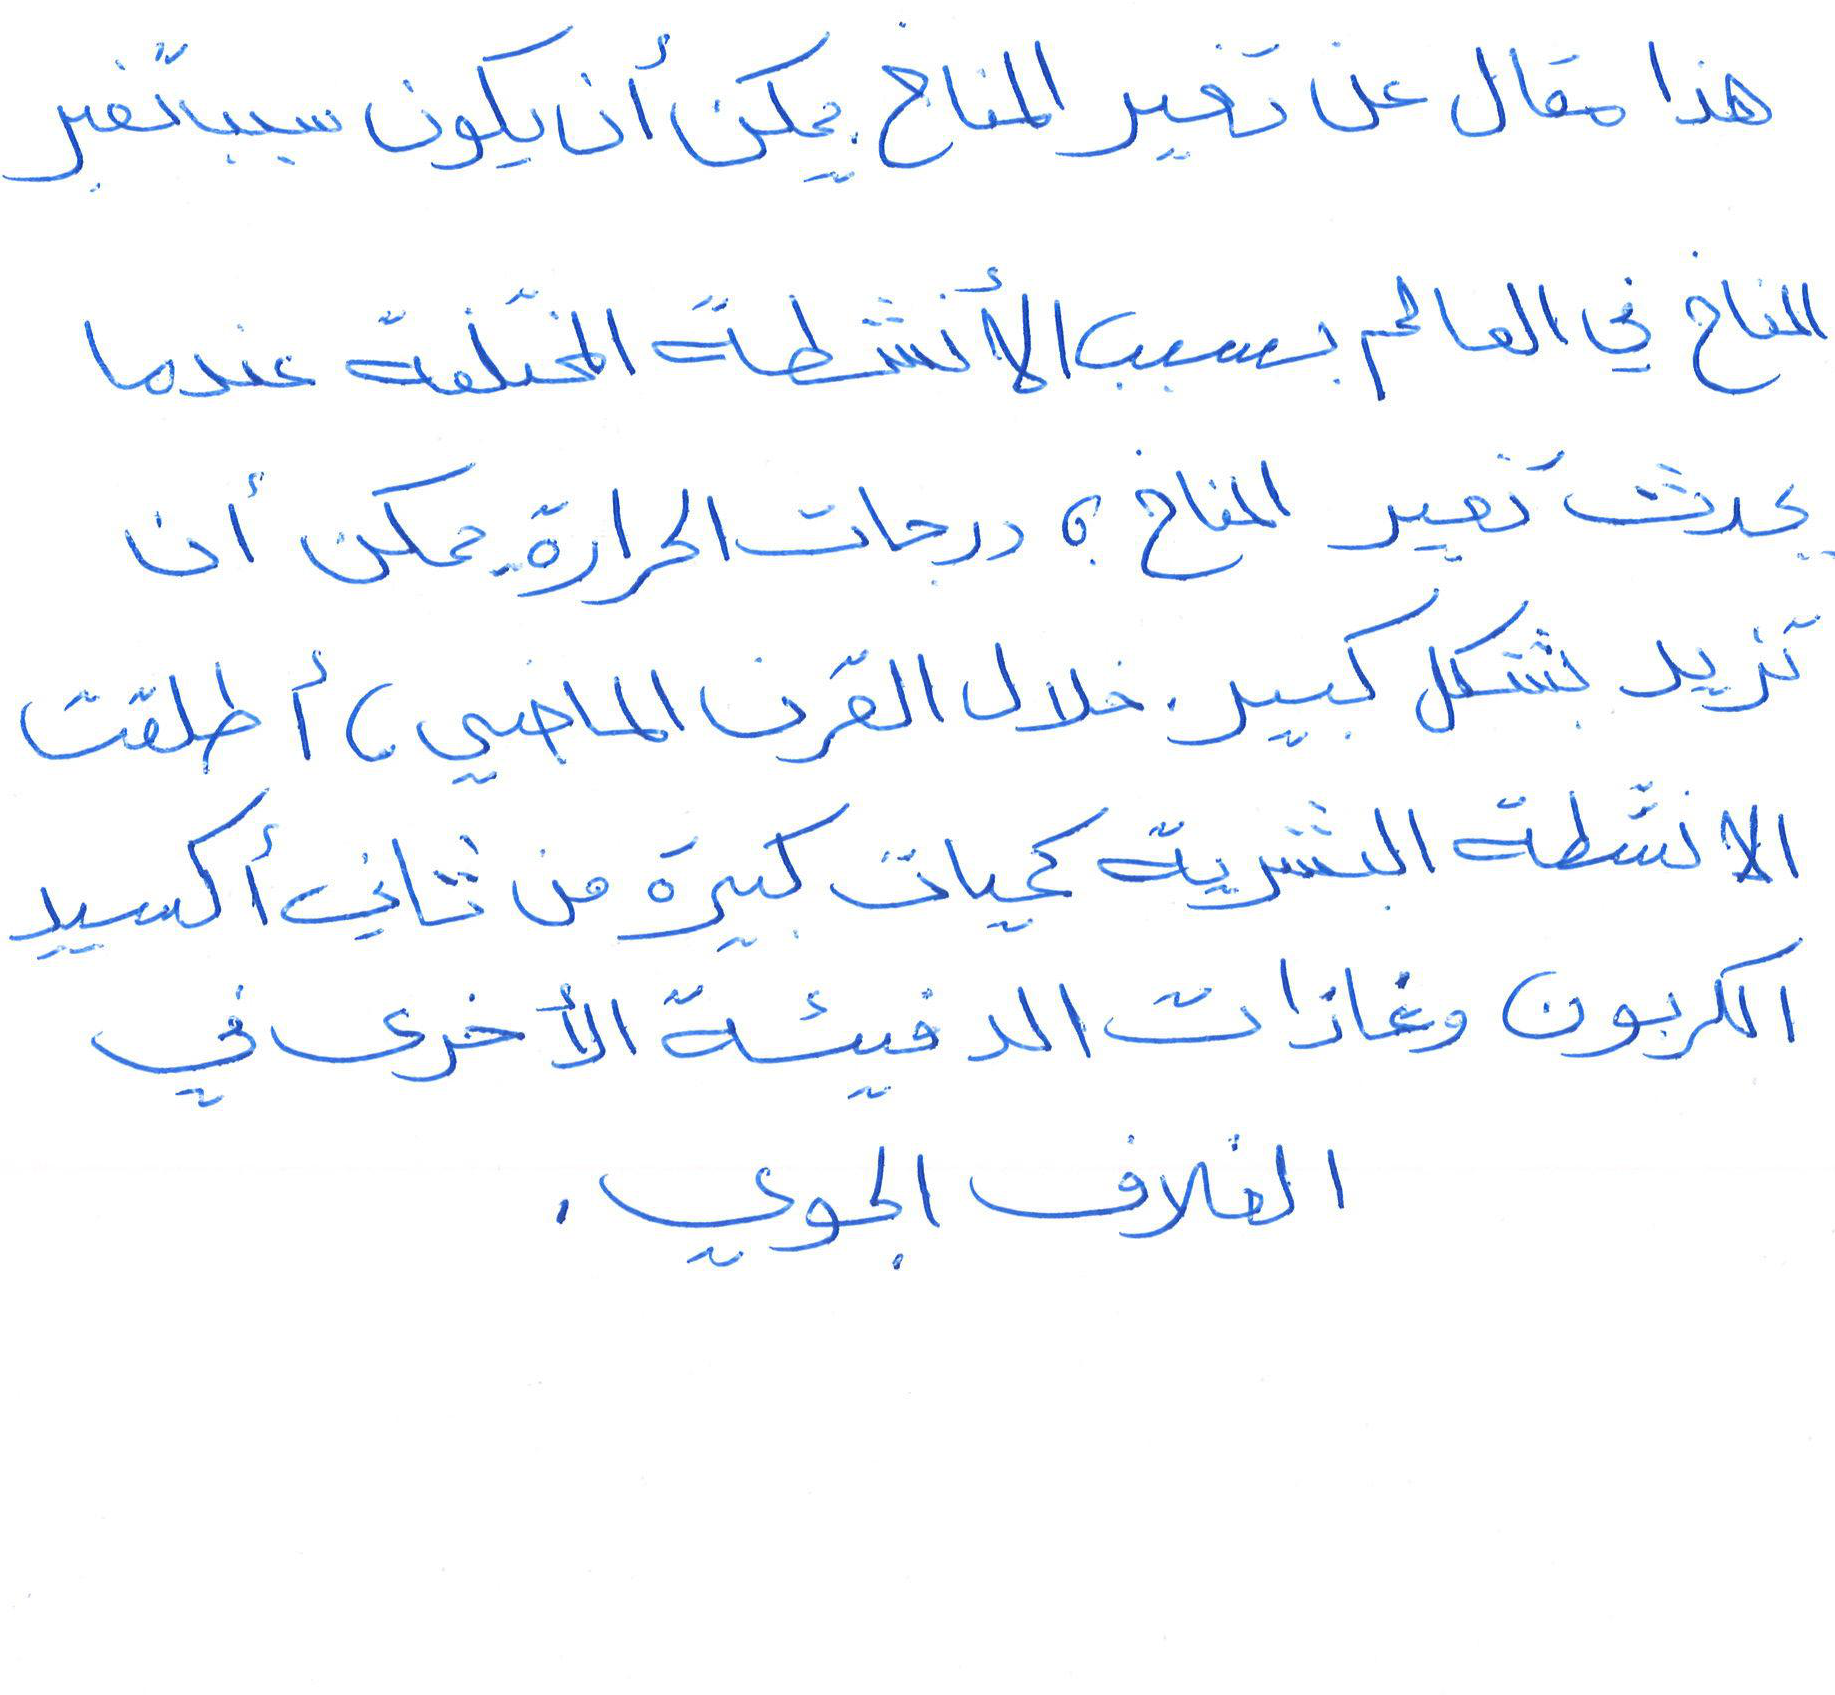 هذا مقال عن تغير المناخ. يمكن أن يكون سبب تغير
المناخ في العالم بسبب الأنشطة المختلفة عندما
يحدث تغير المناخ ، درجات الحرارة يمكن أن
تزيد بشكل كبير. خلال القرن الماضي، أطلقت
الانشطة البشرية كميات كبيرة من ثاني أكسيد
الكربون وغازات الدفيئة الأخرى في
الغلاف الجوي.